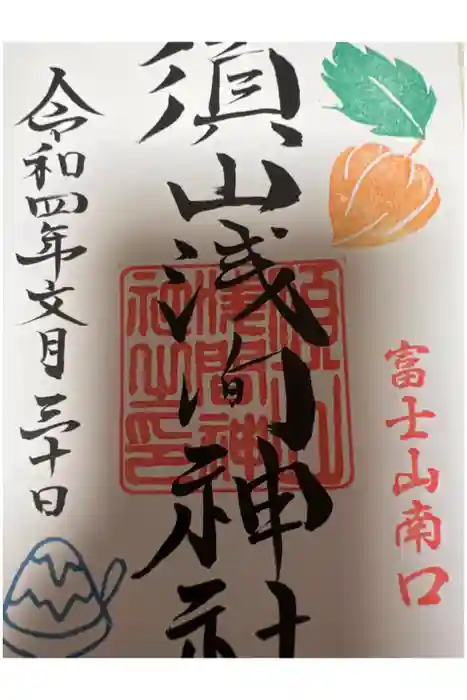 富士山南口
須山浅間神社
須山
浅間神
社之印
令和四年文月三十日